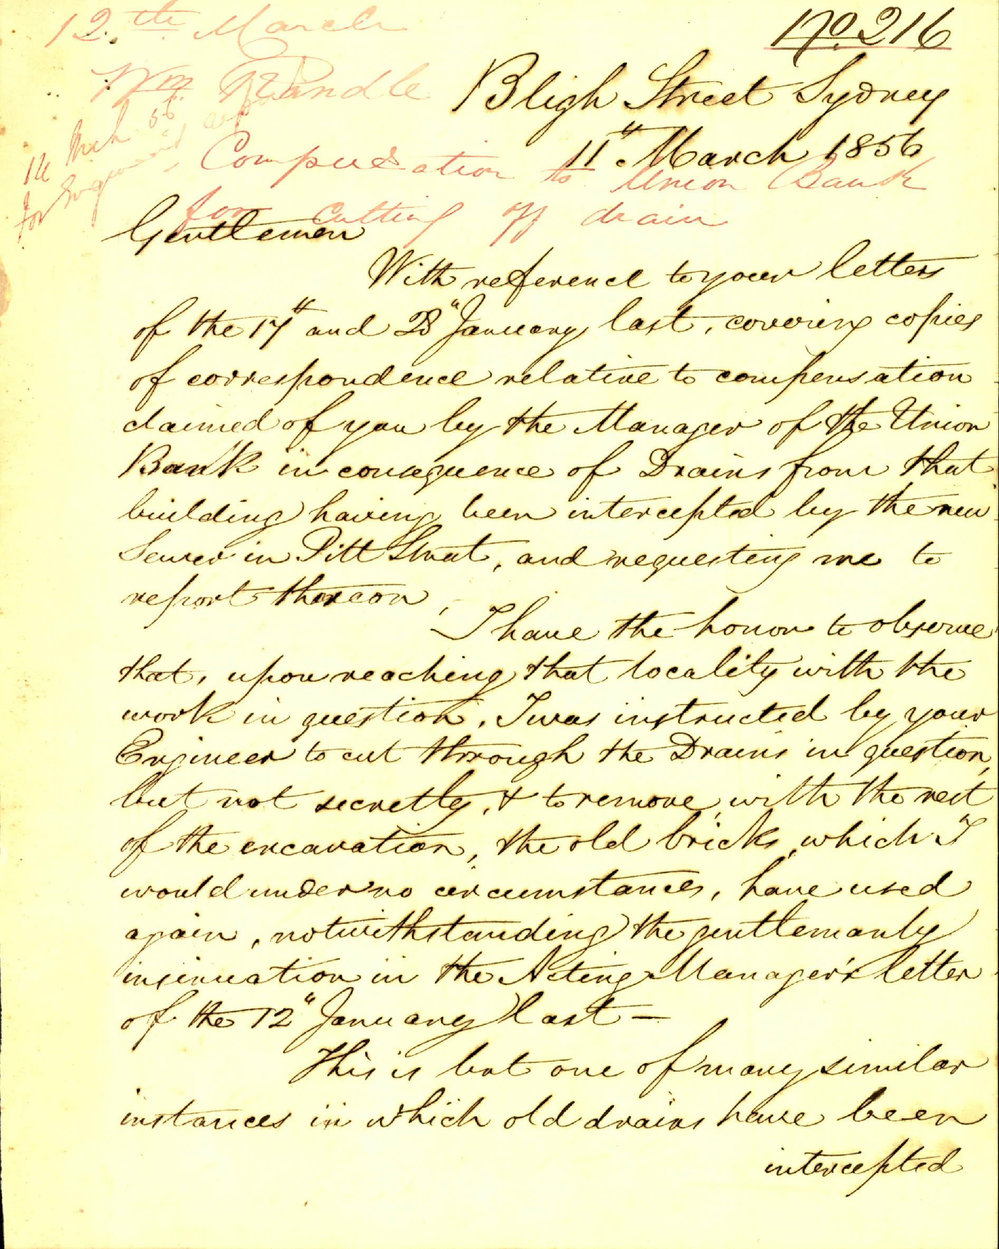 No. 216
12th March
Wm Randle
Bligh Street Sydney
14 Mch 56
11th March 1856
Compensation to Union Bank
for cutting off drain
Gentlemen
With reference to your letters
of the 17th and 28" January last, covering copies
of correspondence relative to compensation
claimed of you by the Manager of the Union
Bank in consequence of Drains from that
building having been intercepted by the new
Sewer in Pitt Street, and requesting me to
report thereon,
I have the honor to observe
that, upon reaching that locality with the
work in question, I was instructed by your
Engineer to cut through the Drains in question,
but not secretly, & to remove, with the rest
of the excavation, the old bricks, which I
would under no circumstances, have used
again, notwithstanding the gentlemanly
insinuation in the Acting Manager's letter
of the 12" January last —
This is but one of many similar
instances in which old drains have been
intercepted